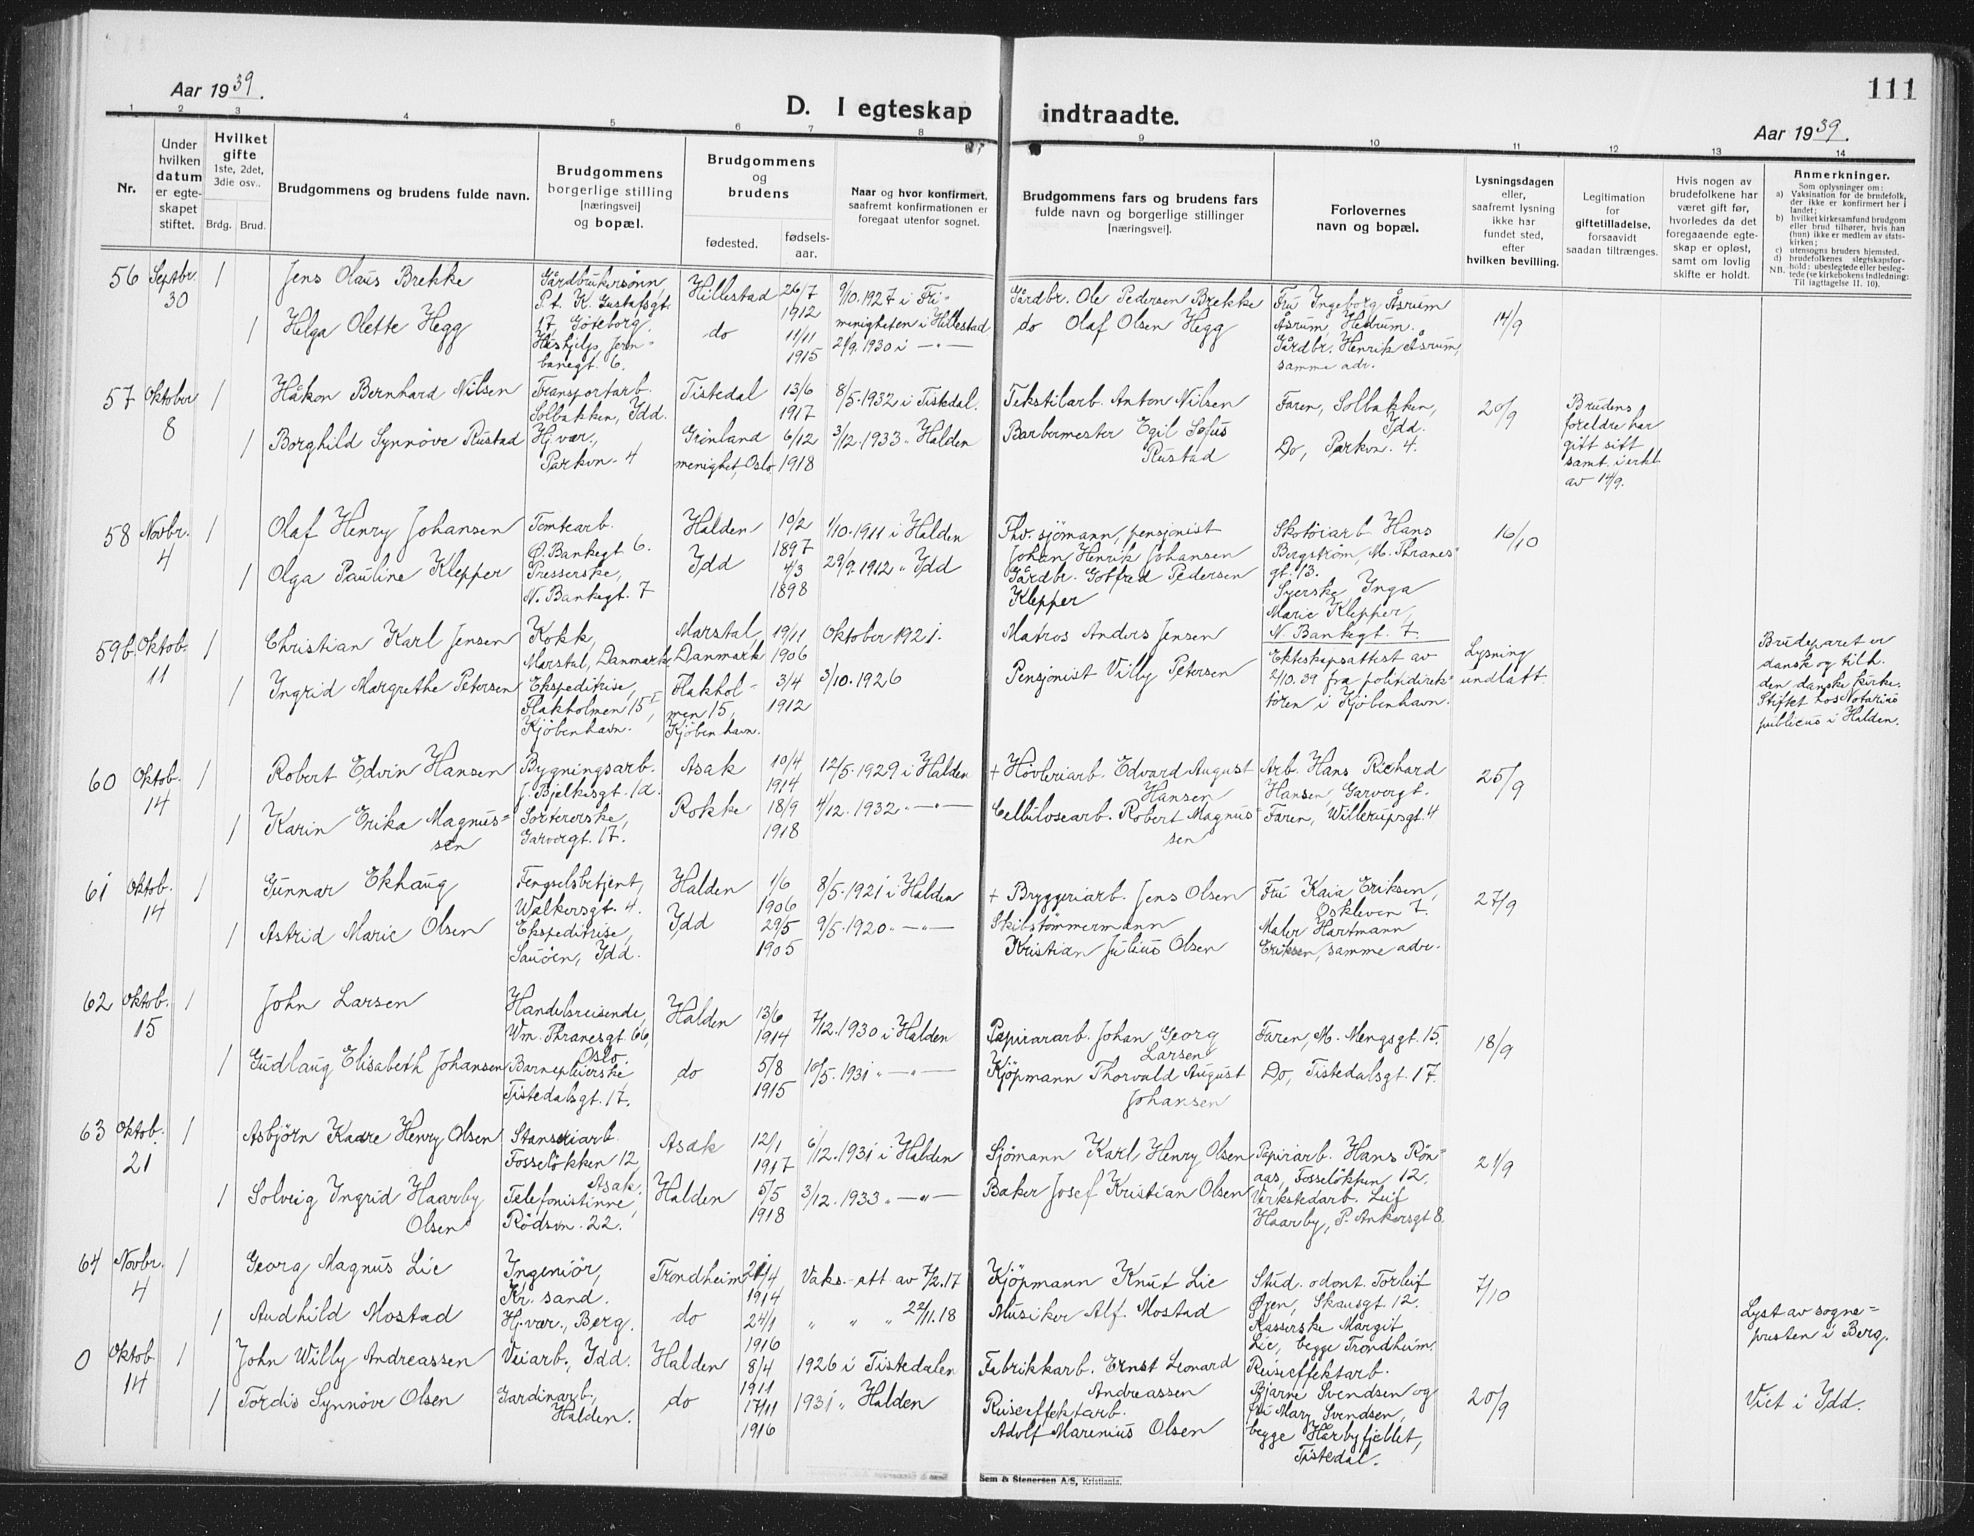 Aar 1939.
111
D. I egteskap indtraadte.
Aar 1939.
1 2 3 4 5 6 7 8 9 10 11 12 13 14
Nr.
Under hvilken datum er egte-skapet stiftet.
Hvilket gifte 1ste, 2det, 3die osv..
Brdg. Brud.
Brudgommens og brudens fulde navn.
Brudgommens borgerlige stilling [næringsvei] og bopæl.
Brudgommens og brudens
fødested. fødsels-aar.
Naar og hvor konfirmert, saafremt konfirmationen er foregaat utenfor sognet.
Brudgommens fars og brudens fars fulde navn og borgerlige stillinger [næringsvei].
Forlovernes navn og bopæl.
Lysningsdagen eller, saafremt lysning ikke har fundet sted, efter hvilken bevilling.
Legitimation for giftetilladelse, forsaavidt saadan tiltrænges.
Hvis nogen av brudefolkene har været gift før, hvorledes da det foregaaende egte-skap er opløst, samt om lovlig skifte er holdt.
Anmerkninger.
Som oplysninger om:
a) Vaksination for de brudefolk, der ikke er konfirmert her i landet;
b) hvilket kirkesamfund brudgom eller brud tilhører, hvis han (hun) ikke er medlem av stats-kirken;
c) utensogns bruders hjemsted.
d) brudefolkenes slegtskapsfor-hold: ubeslegtede eller besleg-tede (se kirkebokens indledning:
NB. Til iagttagelse 11. 10).
56 Septbr. 30 1 Jens Olaus Brekke Gårdbrukersønn P.t. K. Gustafsgt. 17, Göteborg. Hillestad 26/7 1912 9/10.1927 i Fri-menigheten i Hillestad Gårdbr. Ole Pedersen Brekke Fru Ingeborg Åsrum Åsrum, Hedrum. 14/9
1 Helga Olette Hegg Hushjelp, Jern-banegt. 6. do 11/11 1915 21/9.1930 i —"— do Olaf Olsen Hegg Gårdbr. Henrik Åsrum, samme adr.
57 Oktober 8 1 Håkon Bernhard Nilsen Transportarb. Solbakken, Idd. Tistedal 13/6 1917 8/5.1932 i Tistedal. Tekstilarb. Anton Nilsen Faren, Solbakken, Idd. 20/9 Brudens foreldre har gitt sitt samt. i erkl. av 14/9.
1 Borghild Synnøve Rustad Hj.vær., Parkvn. 4 Grønland menighet, Oslo 6/12 1918 3/12.1933 " Halden Barbermester Egil Sofus Rustad Do, Parkvn. 4.
58 Novbr. 4 1 Olaf Henry Johansen Tomtearb. Ø. Bankegt 6. Halden 10/2 1897 1/10.1911 i Halden Fhv. sjömann, pensjonist Johan Henrik Johansen Skotöiarb. Hans Bergström, M. Thranes gt. 13. 16/10
1 Olga Pauline Klepper Presserske, N. Bankegt. 7 Idd 4/3 1898 29/9.1912 " Idd Gårdbr. Gotfred Pedersen Klepper Syerske Inga Marie Klepper, N. Bankegt. 7.
59b Oktob. 11 1 Christian Karl Jensen Kokk, Marstal, Danmark Marstal, Danmark 19/11 1906 Oktober 1921. Matros Anders Jensen Ekteskapsattest av 2/10.39 fra politidirek-tören i Kjöbenhavn. Lysning undlatt. Brudeparet er dansk og tilh. den danske kirke. Stiftet hos Notarius publicus i Halden.
1 Ingrid Margrethe Petersen Ekspeditrise, Flakholmen 15, Kjöbenhavn. Flakhol-men 15, Kjöbenhavn. 3/4 1912 3/10.1926 Pensjonist Villy Petersen
60 Oktob. 14 1 Robert Edvin Hansen Bygningsarb. J. Bjelkesgt. 1a. Asak 10/4 1914 12/5.1929 i Halden + Hövleriarb. Edvard August Hansen Arb. Hans Richard Hansen, Garvergt. 25/9
1 Karin Erika Magnus-sen Sortererske, Garvergt. 17. Rokke 18/9 1918 4/12.1932 "—"— Cellulosearb. Robert Magnus-sen Faren, Willerupsgt. 4
61 Oktob. 14 1 Gunnar Ekhaug Fengselsbetjent, Walkersgt. 4. Halden 1/6 1906 8/5.1921 i Halden + Bryggeriarb. Jens Olsen Fru Kaia Eriksen, Oskleven 7. 27/9
1 Astrid Marie Olsen Ekspeditrise, Sauöen, Idd. Idd 29/5 1905 9/5.1920 "—"— Skibstömmermann Kristian Julius Olsen Maler Hartmann Eriksen, samme adr.
62 Oktob. 15 1 John Larsen Handelsreisende, Wm. Thranesgt. 66, Oslo. Halden 13/6 1914 7/12.1930 i Halden Papirarb. Johan Georg Larsen Faren, M. Mengsgt. 15. 18/9
1 Gudlaug Elisabeth Johansen Barnepleierske Tistedalsgt. 17. do 5/8 1915 10/5.1931 "—"— Kjöpmann Thorvald August Johansen Do, Tistedalsgt. 17.
63 Oktob. 21 1 Asbjörn Kaare Henry Olsen Stanseriarb. Fosselökken 12, Asak. Asak 12/1 1917 6/12.1931 i Halden Sjömann Karl Henry Olsen Papirarb. Hans Rön-aas, Fosselökken 12. 21/9
1 Solveig Ingrid Haarby Olsen Telefonistinne, Rödsvn. 22. Halden 5/5 1918 3/12.1933 "—"— Baker Josef Kristian Olsen Verkstedarb. Leif Haarby, P. Ankersgt 8.
64 Novbr. 4 1 Georg Magnus Lie Ingeniör, Kr. sand. Trondheim 21/4 1914 Vaks.-att av 7/2.17 Kjöpmann Knut Lie Stud. odont. Torleif Øren, Skausgt. 12. 7/10
1 Audhild Mostad Hj.vær., Berg. do 24/1 1916 " " " 22/11.18 Musiker Alf. Mostad Kasserske Margit Lie, begge Trondheim. Lyst av sogne-presten i Berg.
0 Oktob. 14 1 John Willy Andreassen Veiarb., Idd. Halden 8/4 1911 1926 i Tistedalen Fabrikkarb. Ernst Leonard Andreassen Reiseeffektarb. Bjarne Svendsen og fru Mary Svendsen, begge Hårbyfjellet, Tistedal. 20/9 Viet i Idd.
1 Tordis Synnöve Olsen Gardinarb., Halden. do 17/11 1916 1931 " Halden Reiseeffektarb. Adolf Marenius Olsen
Sem & Stenersen A/S, Kristiania.